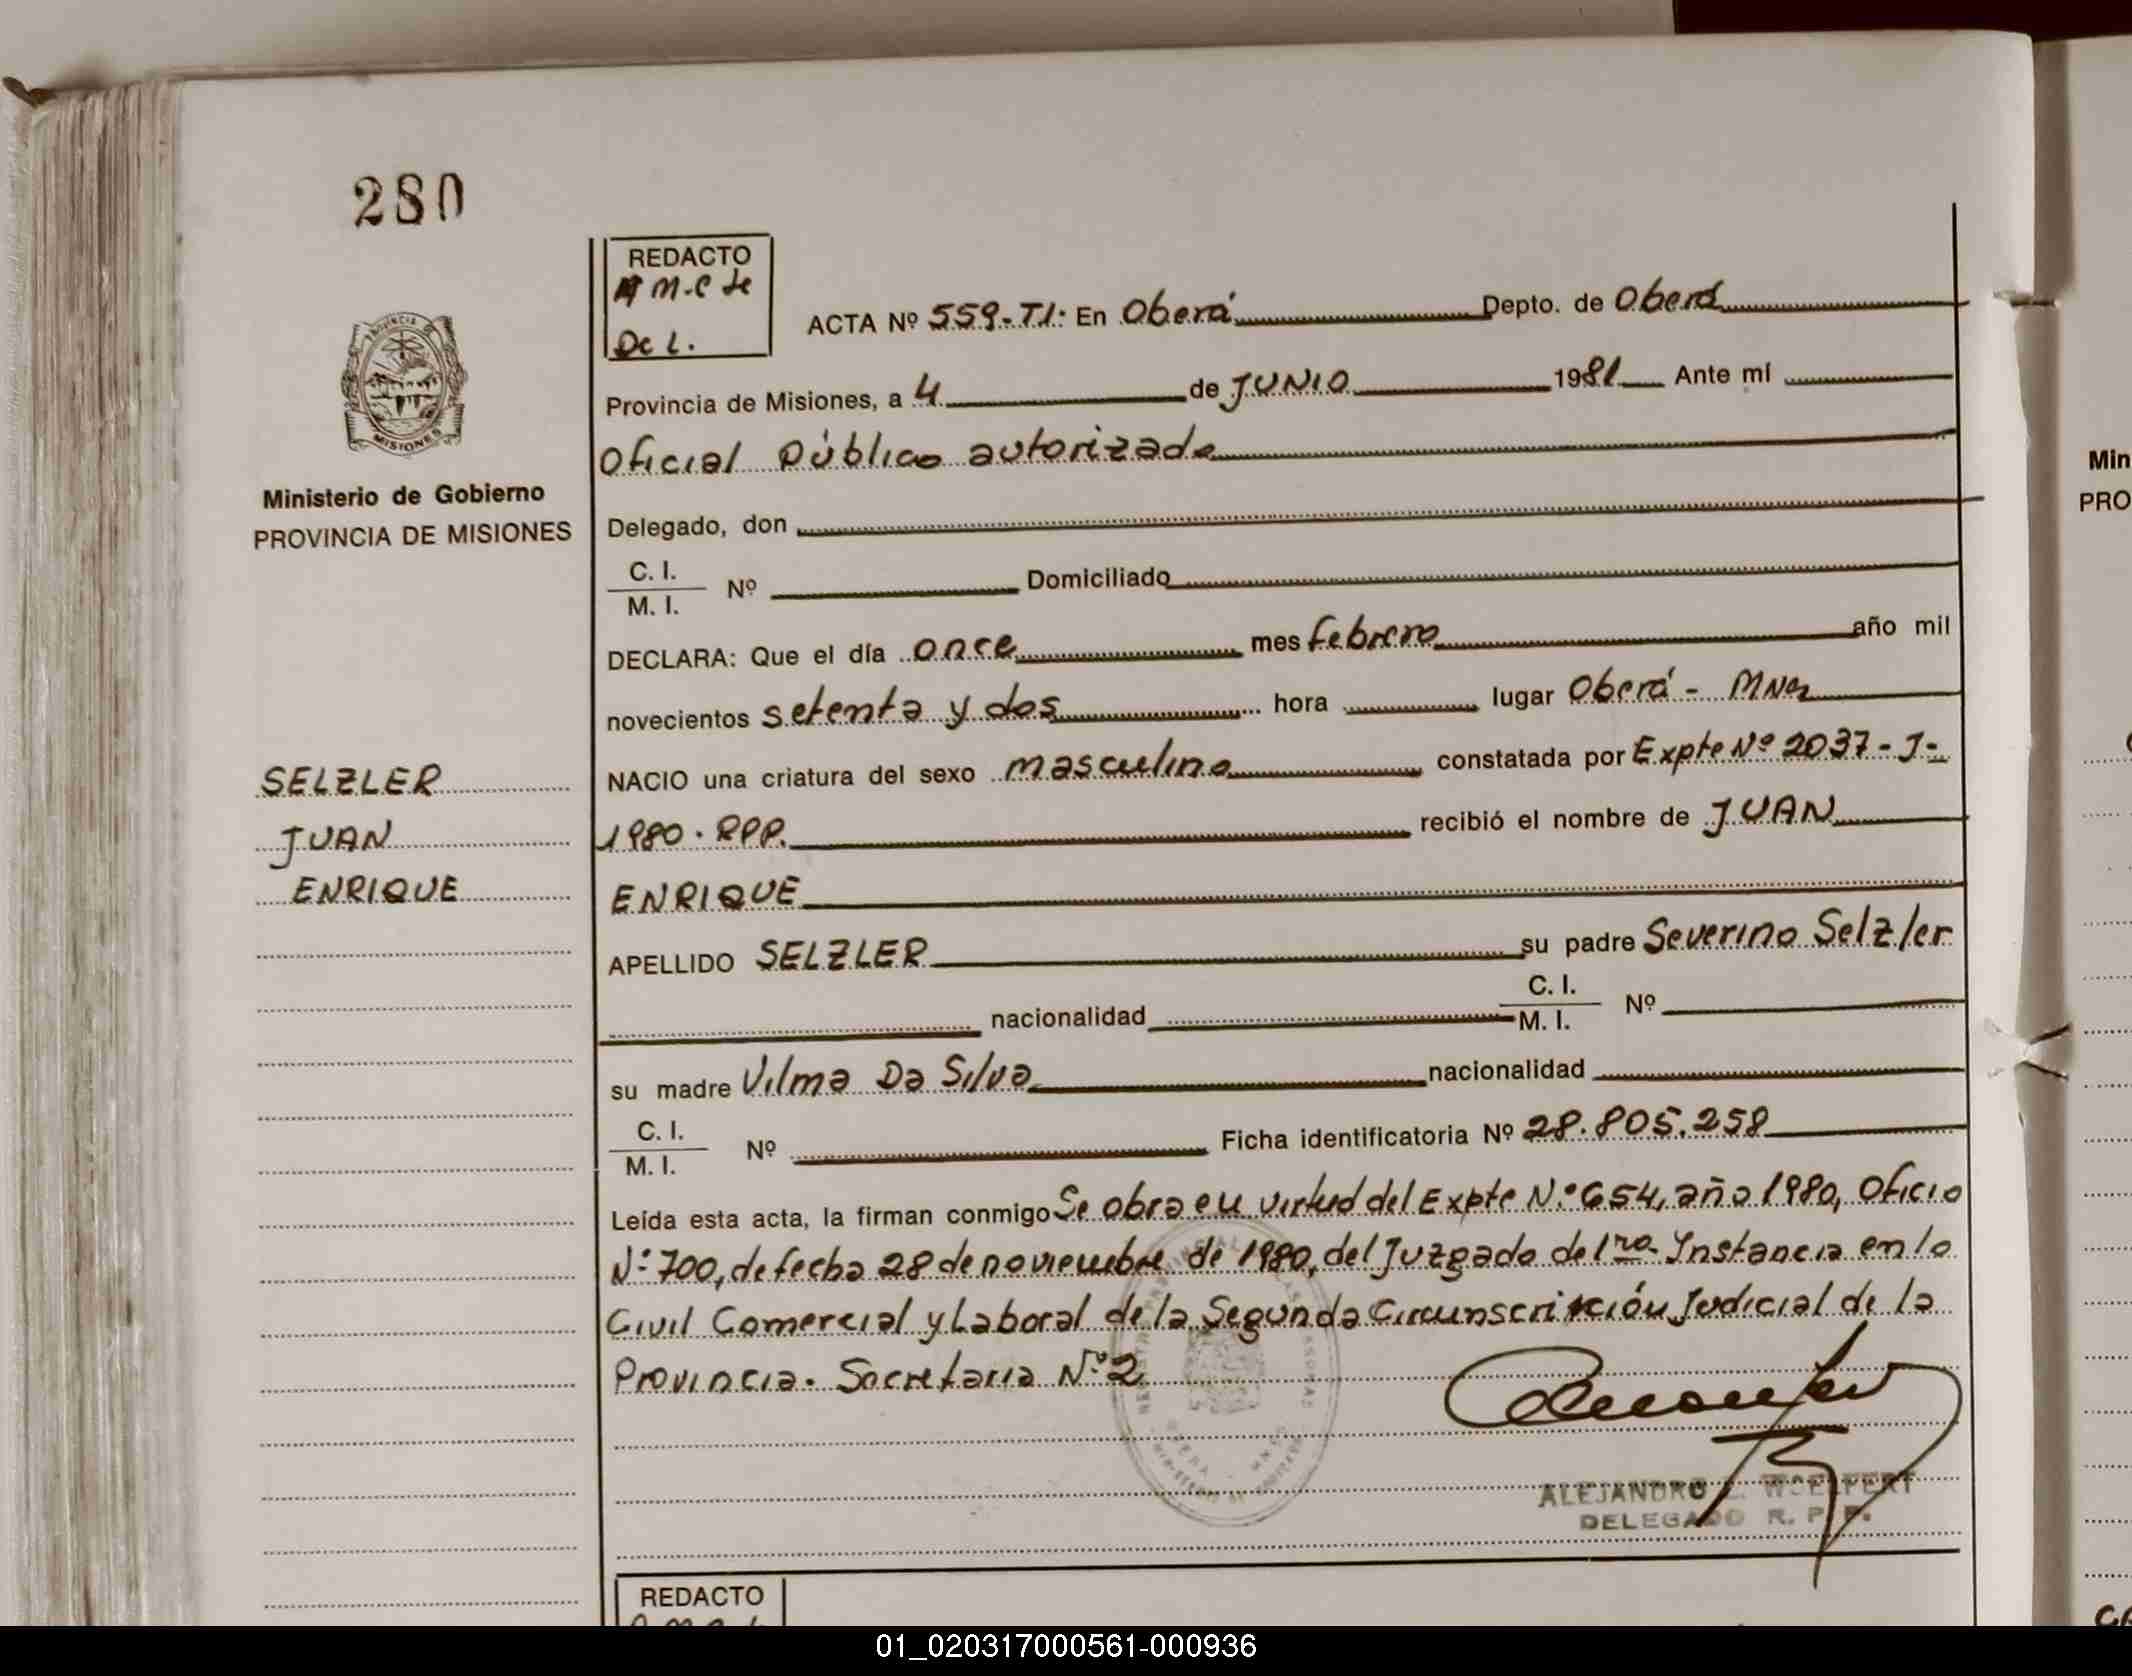 280
REDACTO
A M.C de
De L.
ACTA Nº 559-TI· En Oberá Depto. de Oberá
Provincia de Misiones, a 4 de JUNIO 1981 Ante mí
Oficial Público autorizado
PROVINCIA DE
MISIONES
Ministerio de Gobierno
PROVINCIA DE MISIONES
Delegado, don
C. I.
M. I. Nº Domiciliado
DECLARA: Que el día once mes febrero año mil
novecientos setenta y dos hora lugar Oberá - Mnes
SELZLER
JUAN
ENRIQUE
NACIO una criatura del sexo masculino constatada por Expte Nº 2037-J-
1980. RPP. recibió el nombre de JUAN
ENRIQUE
APELLIDO SELZLER su padre Severino Selzler
nacionalidad C. I.
M. I. Nº
su madre Vilma Da Silva nacionalidad
C. I.
M. I. Nº Ficha identificatoria Nº 28.805.258
Leída esta acta, la firman conmigo Se obra en virtud del Expte Nº 654, año 1980, Oficio
Nº 700, de fecha 28 de noviembre de 1980, del Juzgado de 1ra. Instancia en lo
Civil Comercial y Laboral de la Segunda Circunscripción Judicial de la
Provincia. Secretaria Nº 2
ALEJANDRO WOELFERT
DELEGADO R. P. P.
REDACTO
Min
PRO
01_020317000561-000936